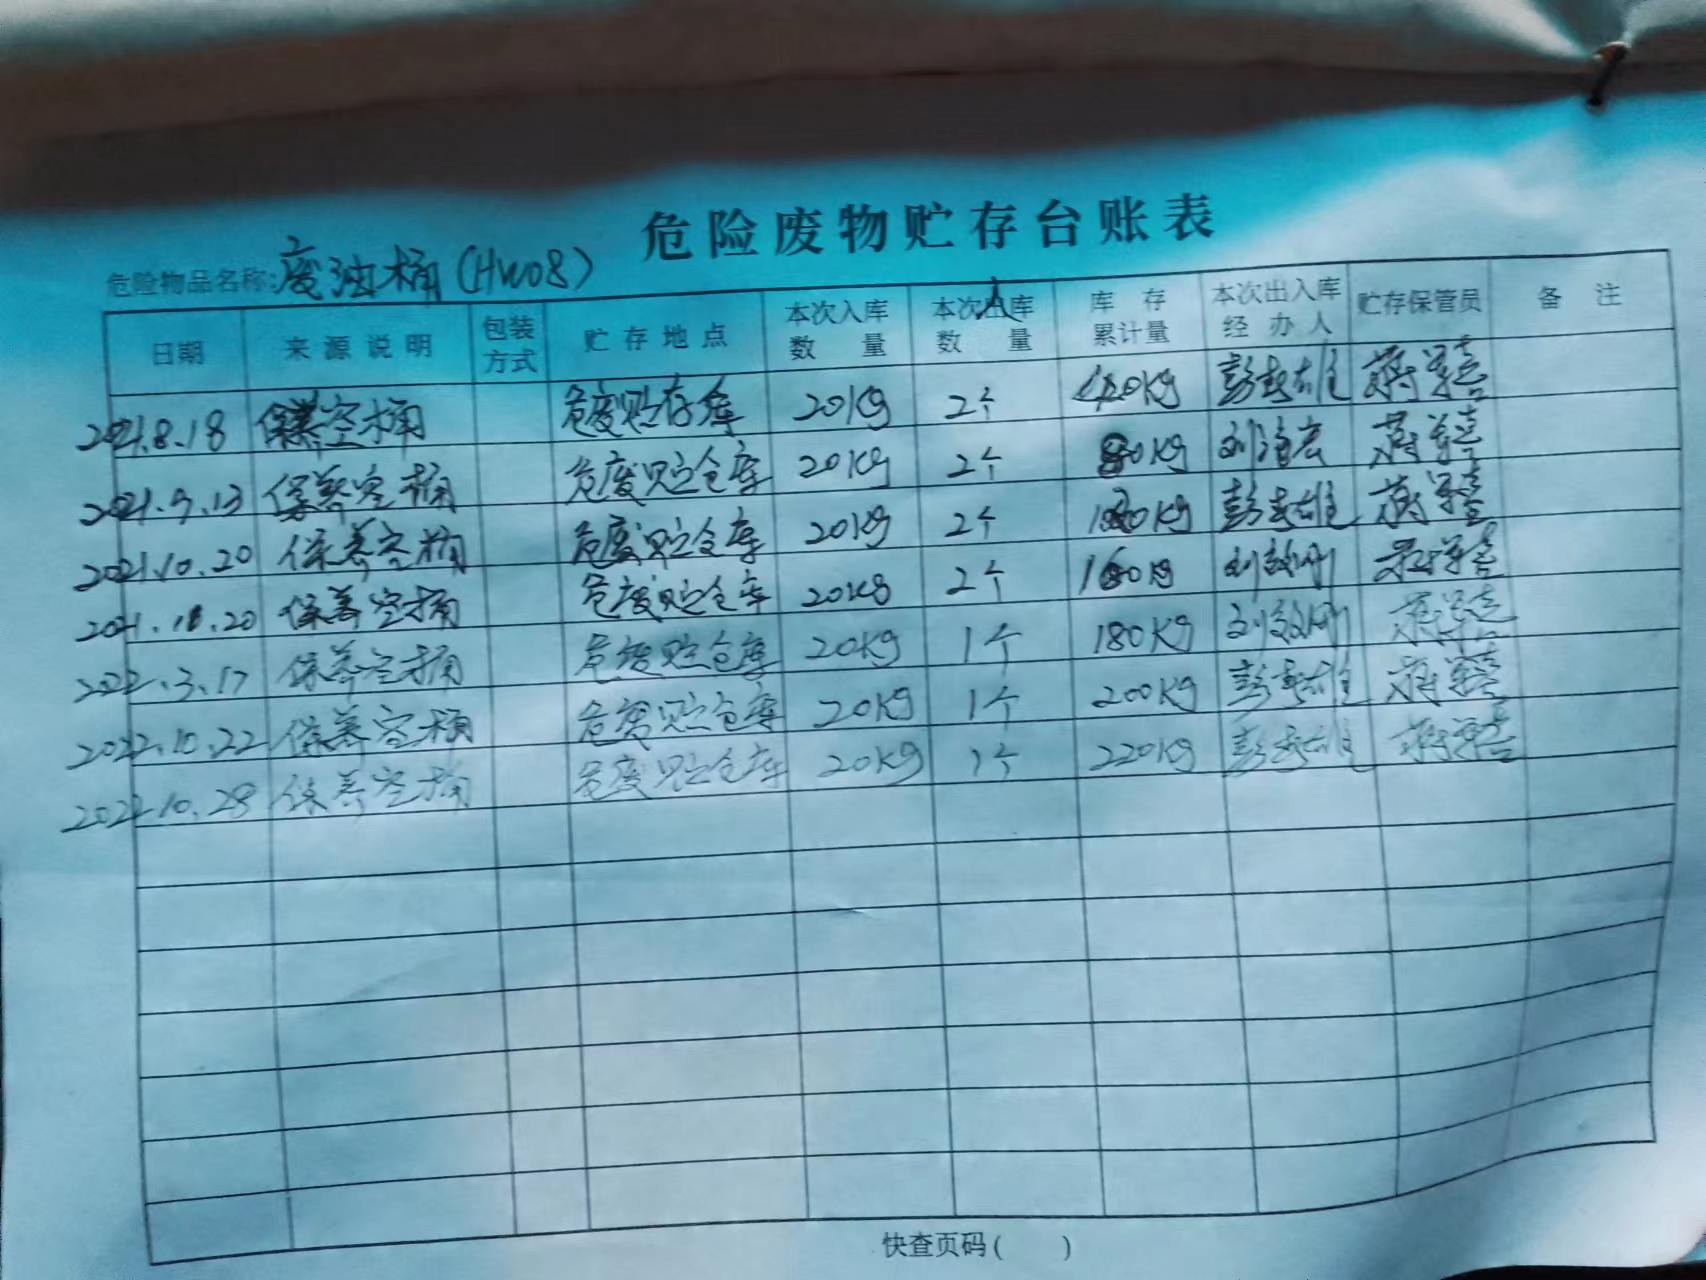 危险废物贮存台账表
危险物品名称:废油桶(HW08)
日期 来源说明 包装方式 贮存地点 本次入库数量 本次入库数量 库存累计量 本次出入库经办人 贮存保管员 备注
2021.8.18 保养空桶 危废贮存库 20Kg 2个 40Kg
2021.9.13 保养空桶 危废贮仓库 20Kg 2个 80Kg
2021.10.20 保养空桶 危废贮仓库 20Kg 2个
2021.11.20 保养空桶 危废贮仓库 20Kg 2个 160Kg
2022.3.17 保养空桶 危废贮仓库 20Kg 1个 180Kg
2022.10.22 保养空桶 危废贮仓库 20Kg 1个 200Kg
2022.10.28 保养空桶 危废贮仓库 20Kg 1个 220Kg
快查页码( )